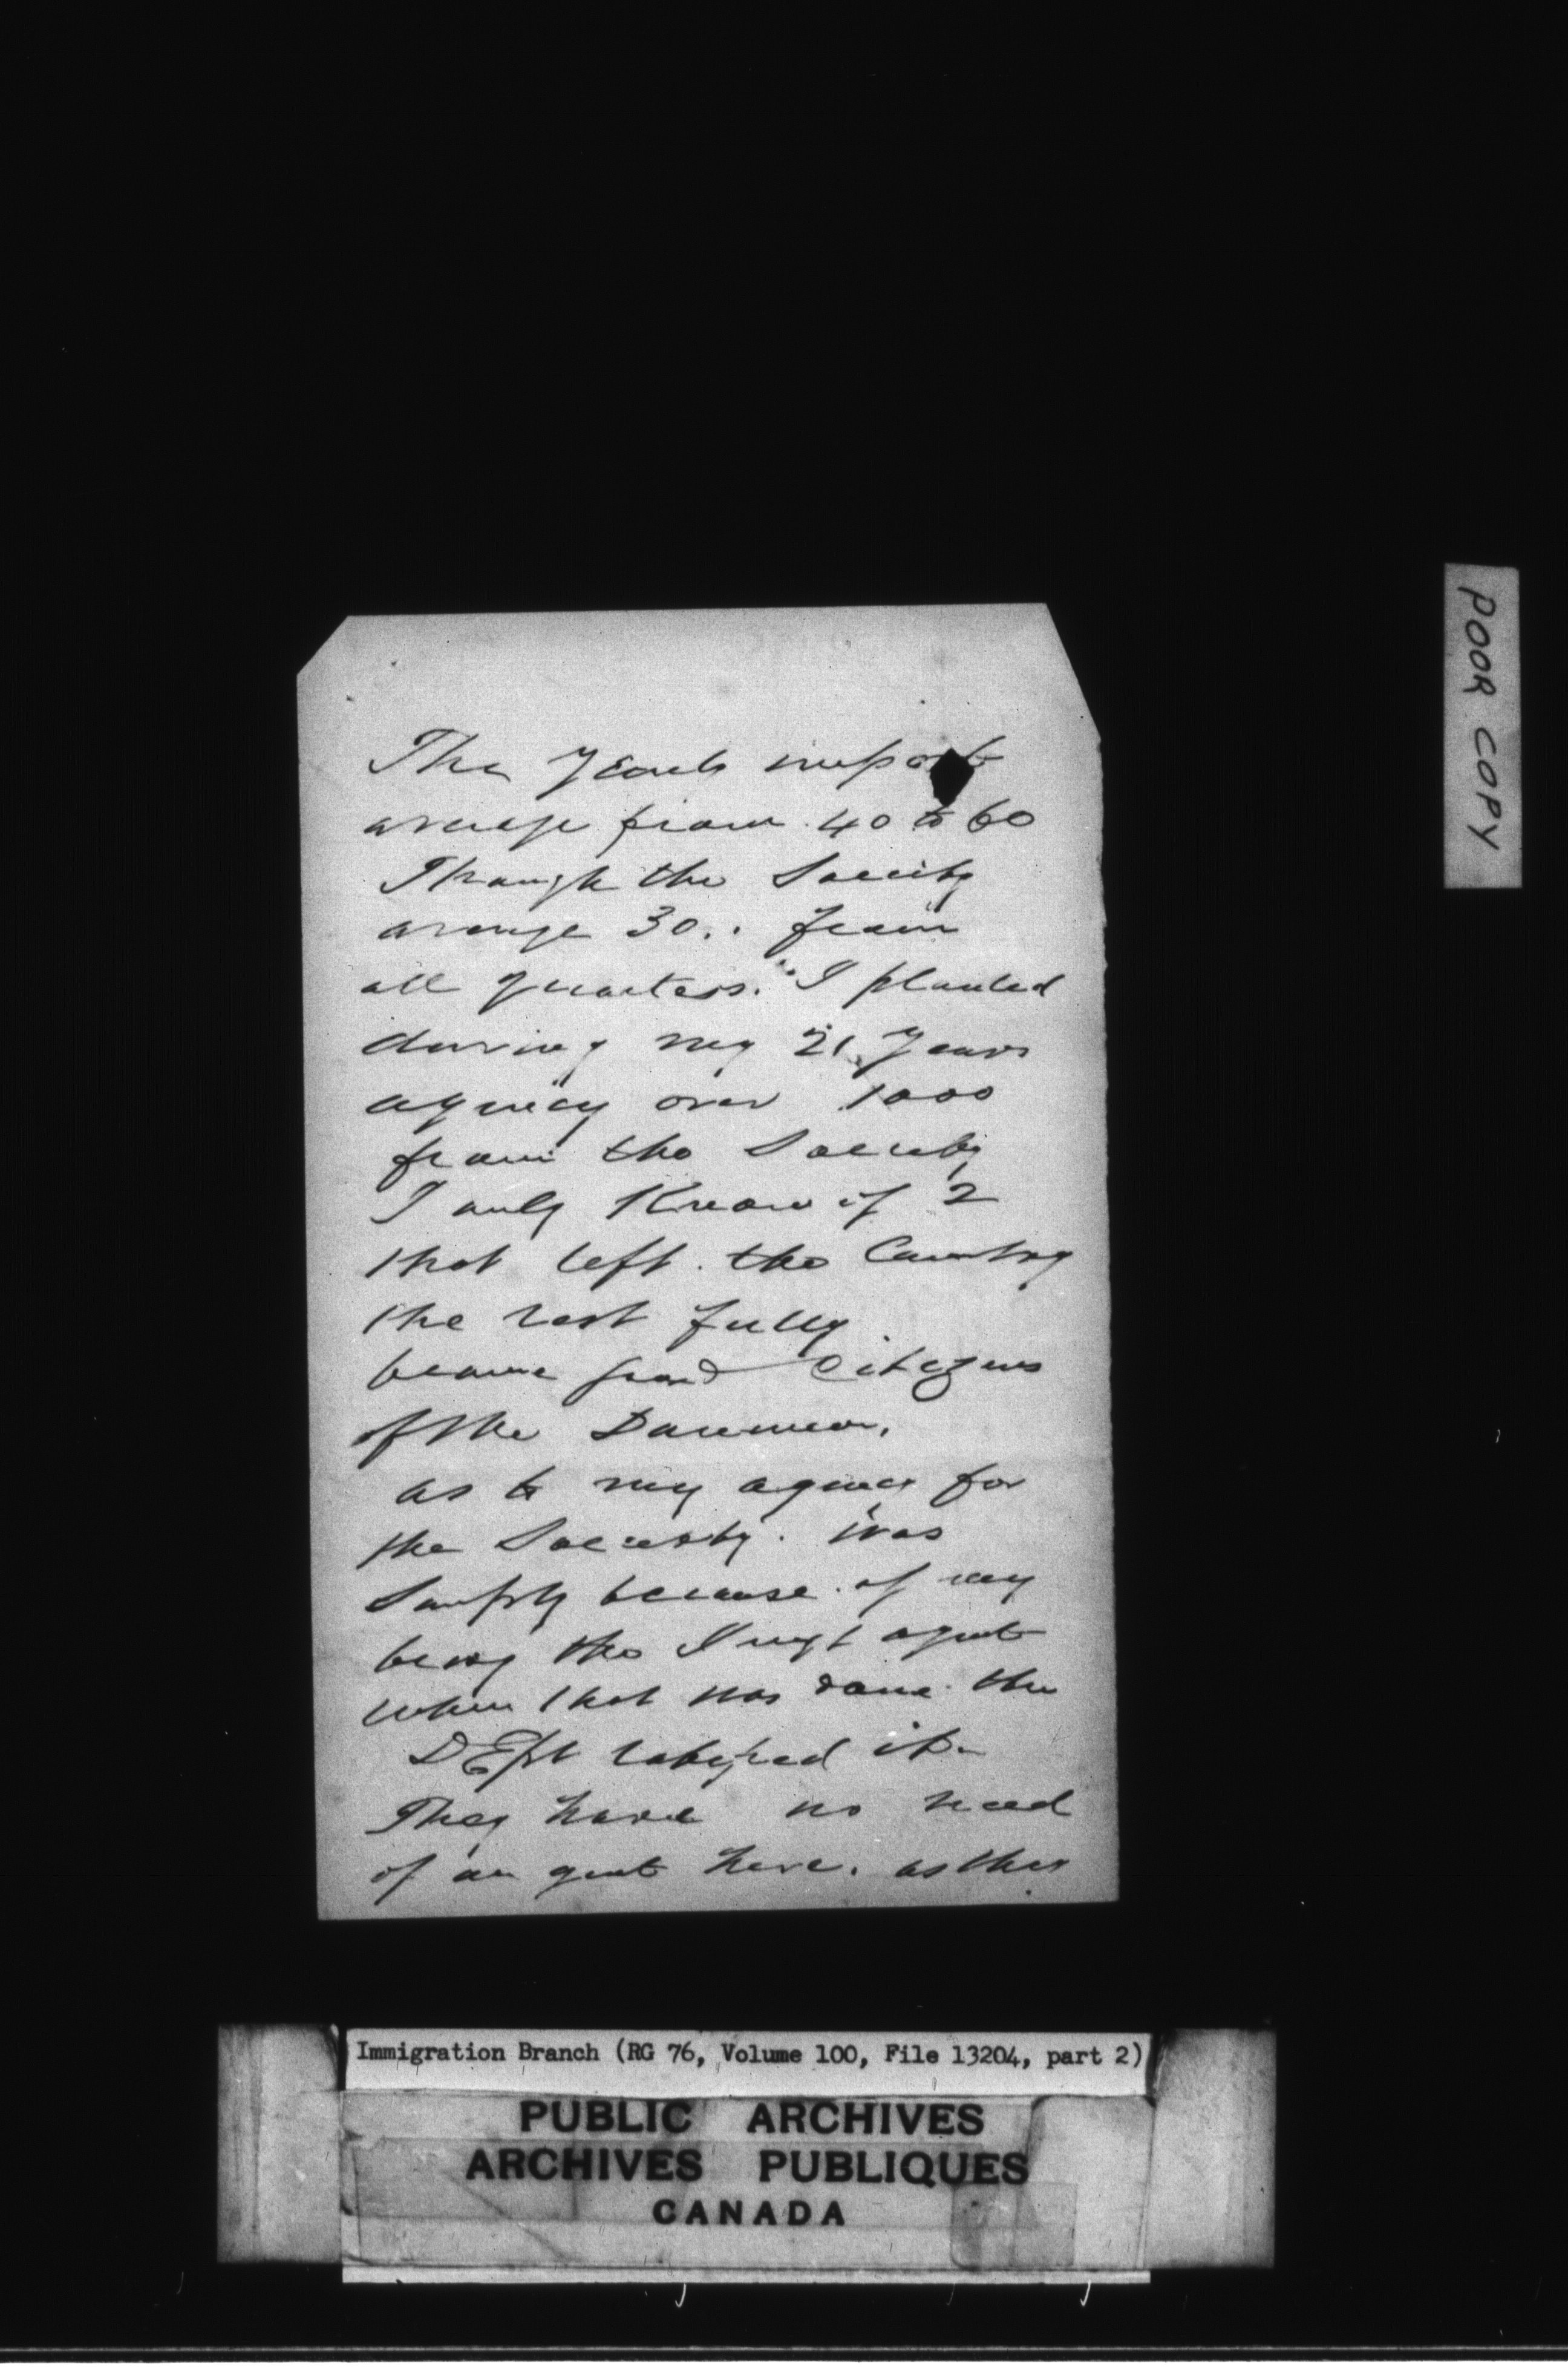 The Years import
average from 40 to 60
Through the Society
average 30.. from
all quarters. I planted
during my 21 years
agency over 1000
from the Society
I only Know of 2
that left the Country
the rest fully
became good Citizens
of the Dominion.
as to my agency for
the Society. was
Simply because of my
being the Imgt agent
when that was done the
DEpt it.
They have no need
of an gent here. as they
POOR COPY
Immigration Branch (RG 76, Volume 100, File 13204, part 2)
PUBLIC ARCHIVES
ARCHIVES PUBLIQUES
CANADA